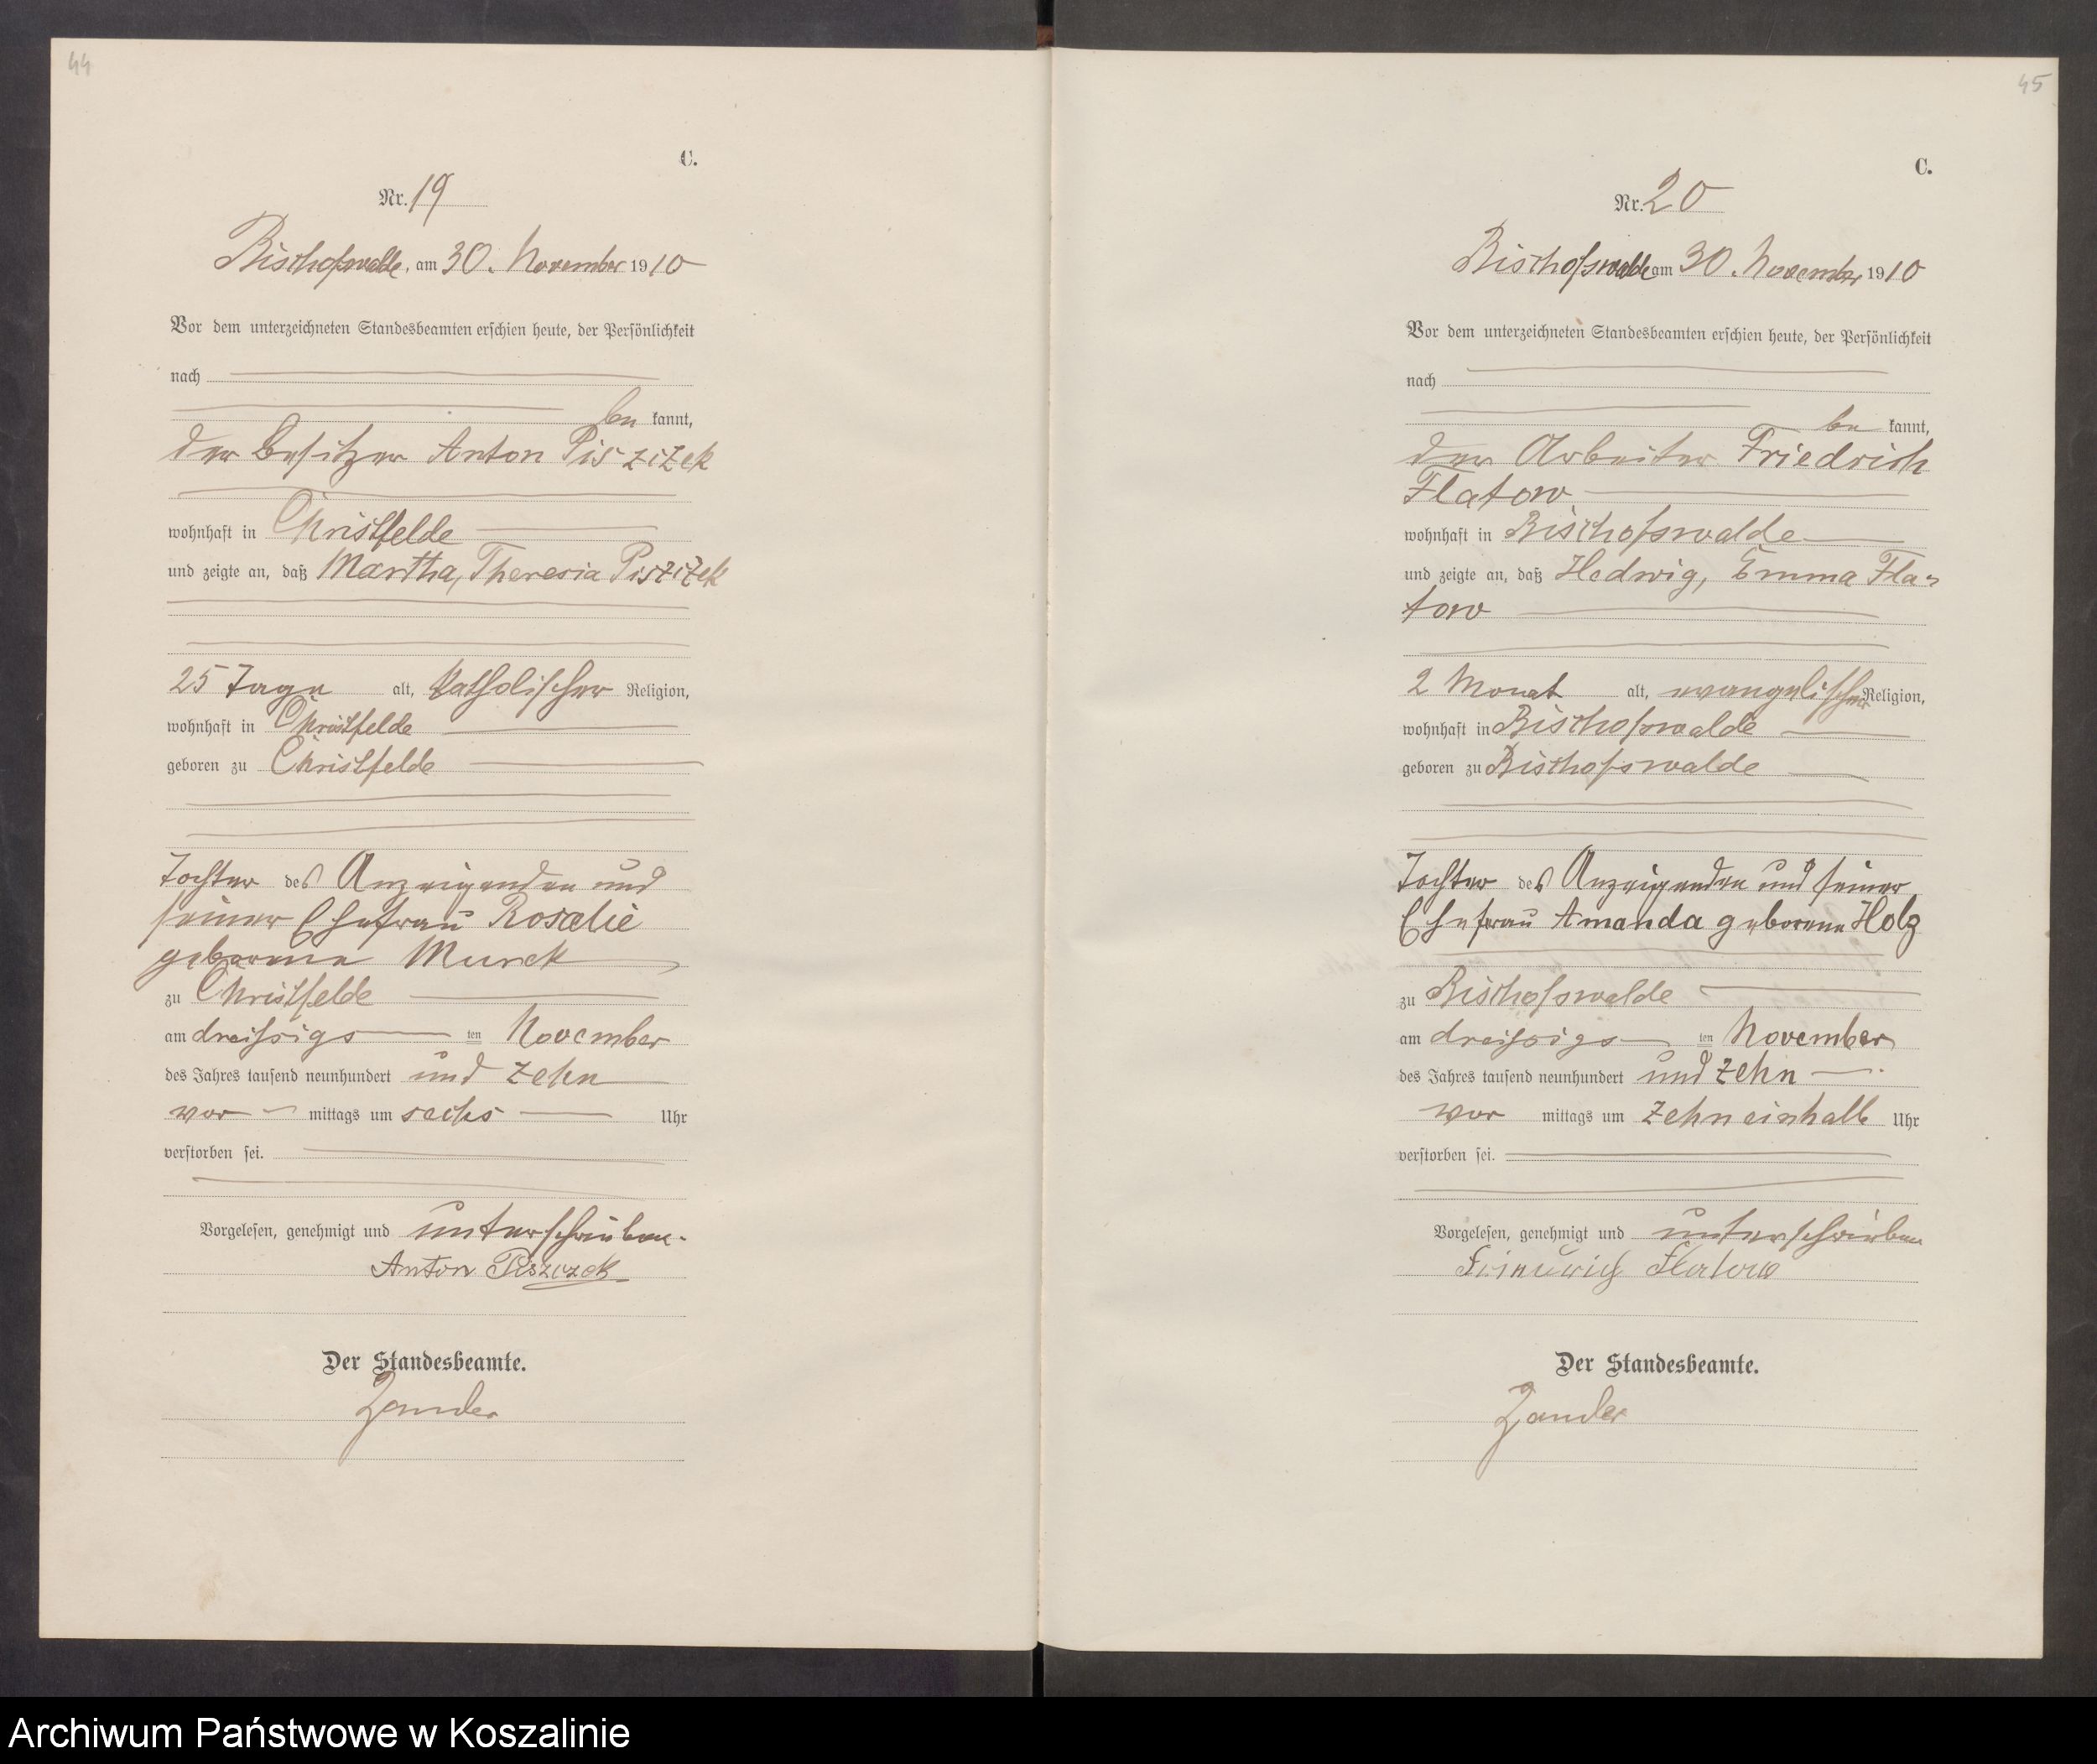 44
C.
Nr. 19
Bischofswalde, am 30. November 1910
Vor dem unterzeichneten Standesbeamten erschien heute, der Persönlichkeit
nach
be kannt,
der Besitzer Anton Piszizek
wohnhaft in Christfelde
und zeigte an, daß Martha, Theresia Piszizek
25 Tage alt, katholischer Religion,
wohnhaft in Christfelde
geboren zu Christfelde
Tochter des Anzeigenden und
seiner Ehefrau Rosalie
geborene Munck
zu Christfelde
am dreissigs ten November
des Jahres tausend neunhundert und zehn
vor mittags um sechs Uhr
verstorben sei.
Vorgelesen, genehmigt und unterschrieben.
Anton Piszczek
Der Standesbeamte.
Zander
45
C.
Nr. 20
Bischofswalde am 30. November 1910
Vor dem unterzeichneten Standesbeamten erschien heute, der Persönlichkeit
nach
be kannt,
der Arbeiter Friedrich
Flatow
wohnhaft in Bischofswalde
und zeigte an, daß Hedwig, Emma Fla-
tow
2 Monat alt, evangelischer Religion,
wohnhaft in Bischofswalde
geboren zu Bischofswalde
Tochter des Anzeigenden und seiner
Ehefrau Amanda geborene Holz
zu Bischofswalde
am dreissigs ten November
des Jahres tausend neunhundert und zehn
vor mittags um zehneinhalb Uhr
verstorben sei.
Vorgelesen, genehmigt und unterschrieben
Friedrich Flatow
Der Standesbeamte.
Zander
Archiwum Państwowe w Koszalinie